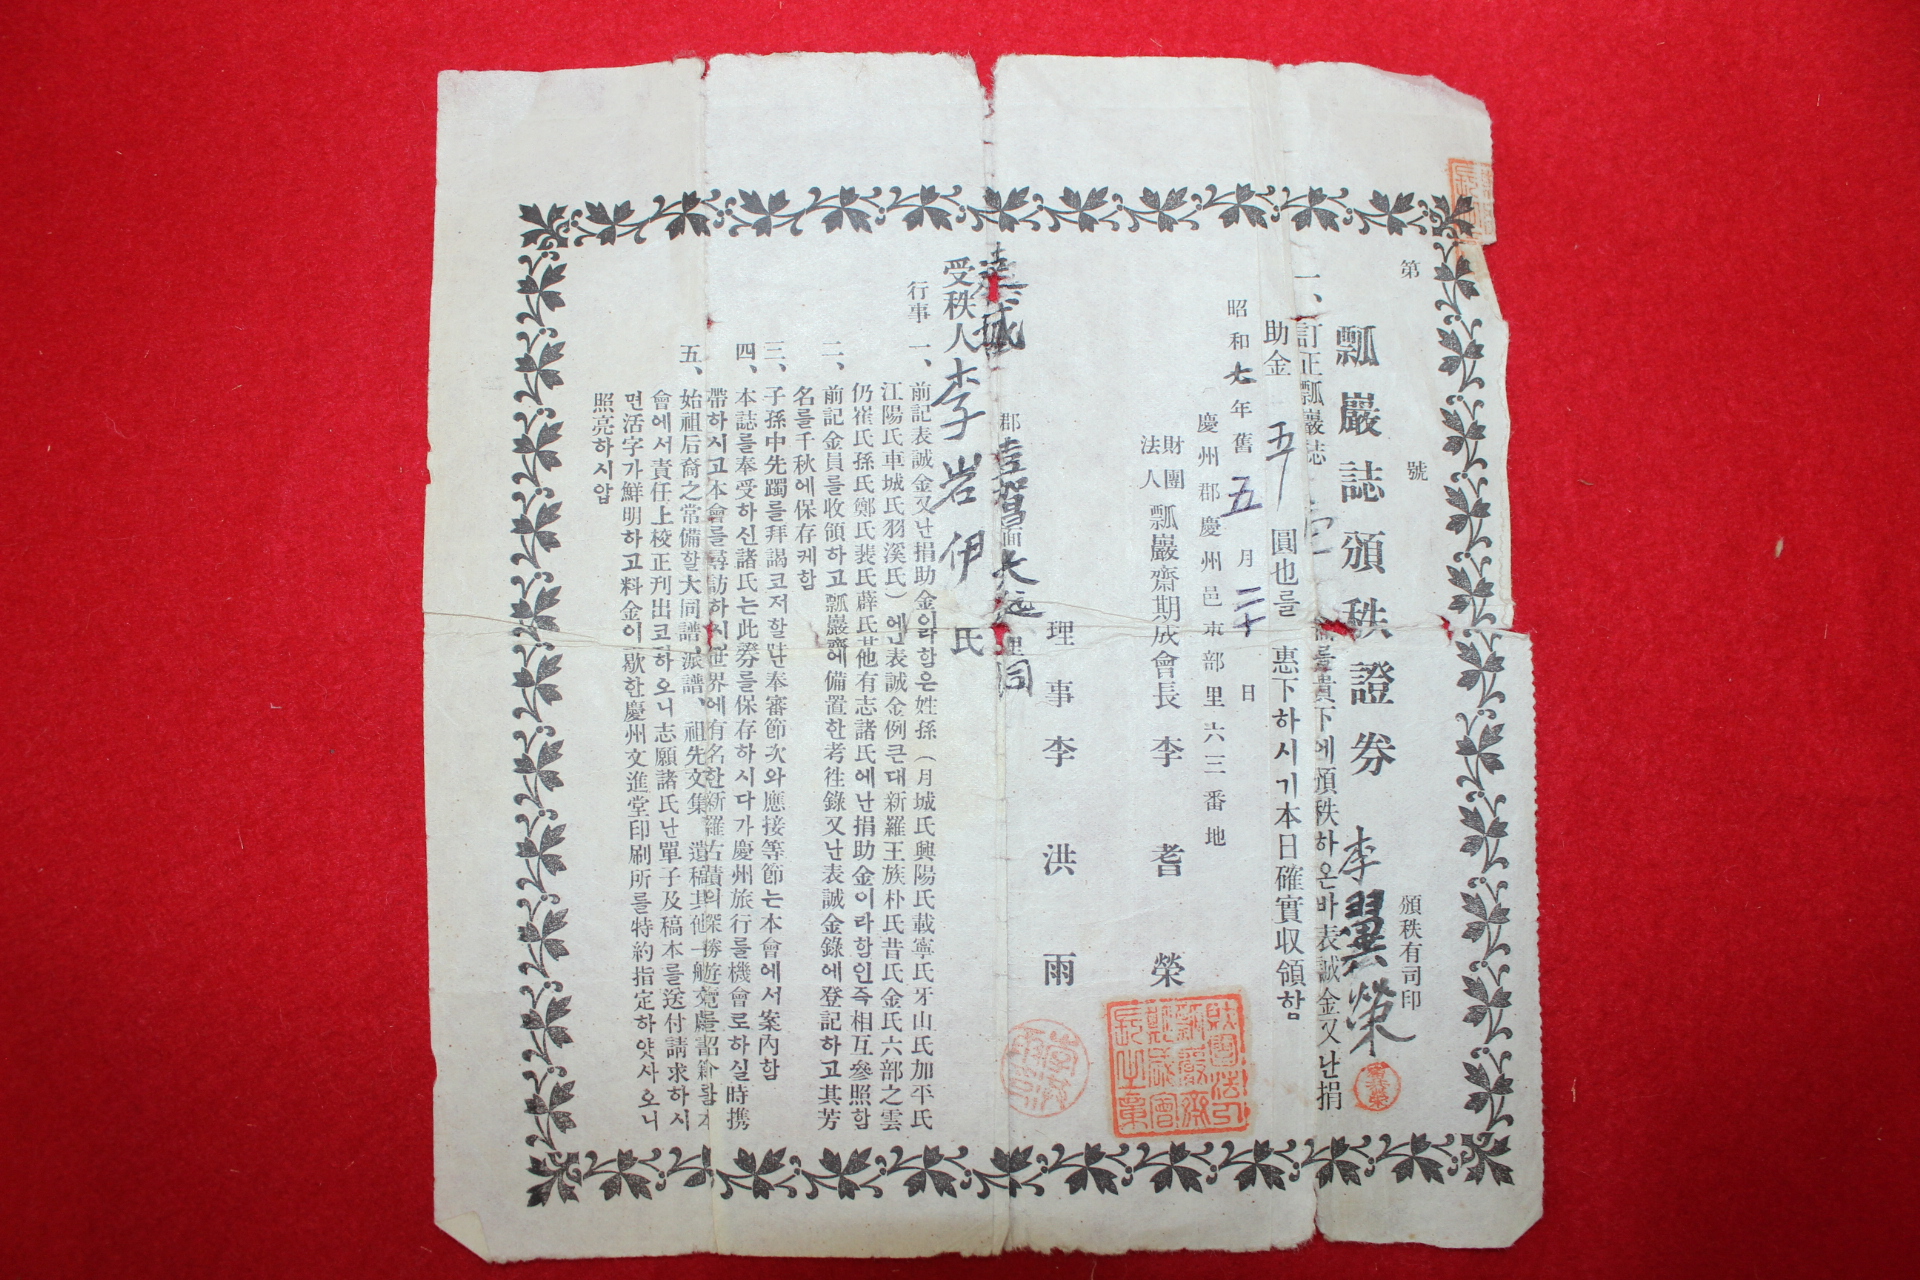 第 號
瓢巖誌頒秩證券
頒秩有司印
李翼榮
一、訂正瓢巖誌 貴下에頒秩하온바表誠金又난捐
助金 五 圓也를 惠下하시기本日確實収領함
昭和七年舊五月二十日
慶州郡慶州邑東部里六三番地
財團法人 瓢巖齋期成會長 李耆榮
理事 李洪雨
郡 面 里 同
受秩人 李岩伊 氏
行事
一、前記表誠金又난捐助金이라함은姓孫(月城氏興陽氏載寧氏牙山氏加平氏
江陽氏車城氏羽溪氏)에난表誠金例큰대新羅王族朴氏昔氏金氏六部之雲
仍崔氏孫氏鄭氏裴氏薛氏其他有志諸氏에난捐助金이라함인즉相互參照함
二、前記金員를收領하고瓢巖齋에備置한考徃錄又난表誠金錄에登記하고其芳
名를千秋에保存케함
三、子孫中先躅를拜謁코저할난奉審節次와應接等節는本會에서案內함
四、本誌를奉受하신諸氏는此券를保存하시다가慶州旅行를機會로하실時携
帶하시고本會를尋訪하시면世界에有名한新羅古蹟의探勝遊覽를紹介함
五、始祖后裔之常備할大同譜、派譜、祖先文集、遺稿其他一般
會에서責任上校正刊出코저하오니志願諸氏난單子及稿本를送付請求하시
면活字가鮮明하고料金이歇한慶州文進堂印刷所를特約指定하얏사오니
照亮하시압